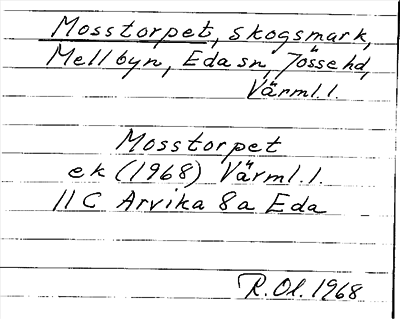 Mosstorpet, skogsmark,
Mellbyn, Eda sn, Jösse hd,
Värml.l.
Mosstorpet
ek (1968) Värml.l.
11 C Arvika 8a Eda
R.Ol. 1968